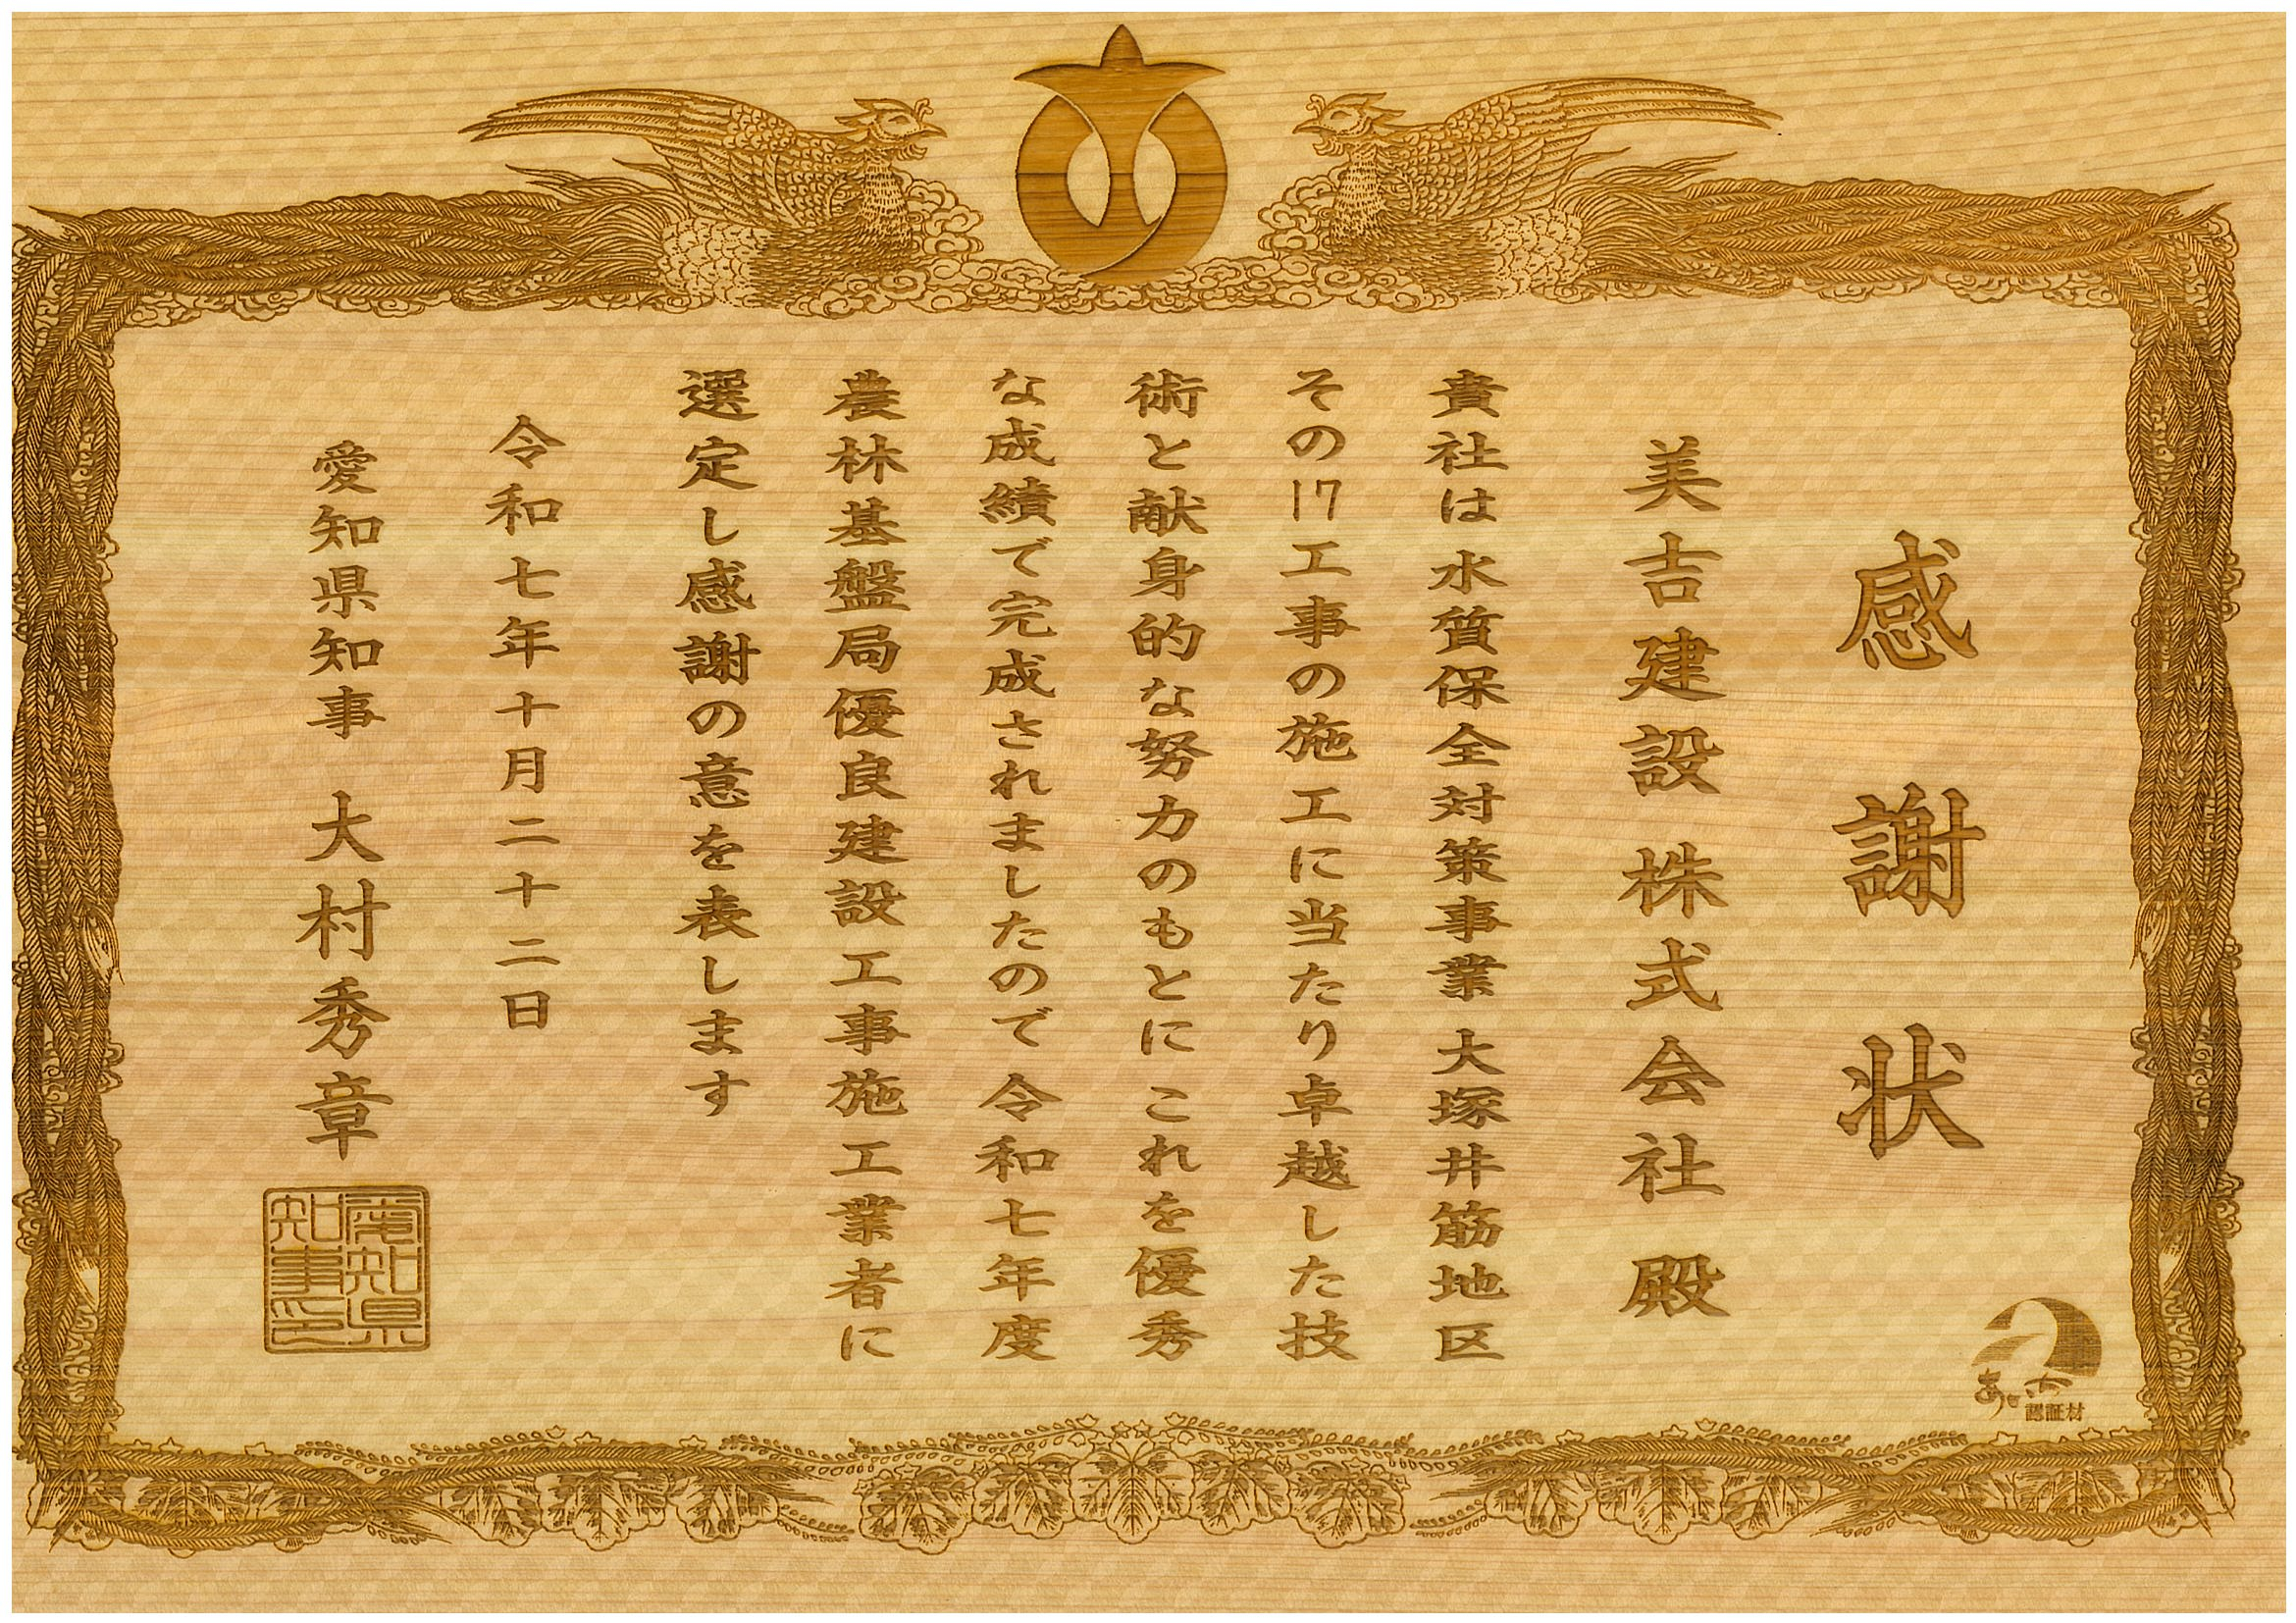 感謝状
美吉建設 株式会社 殿
貴社は 水質保全対策事業 大塚井筋地区
その17工事の施工に当たり卓越した技
術と献身的な努力のもとに これを優秀
な成績で完成されましたので 令和七年度
農林基盤局優良建設工事施工業者に
選定し感謝の意を表します
令和七年十月二十二日
愛知県知事 大村秀章
愛知県
知事印
認証材